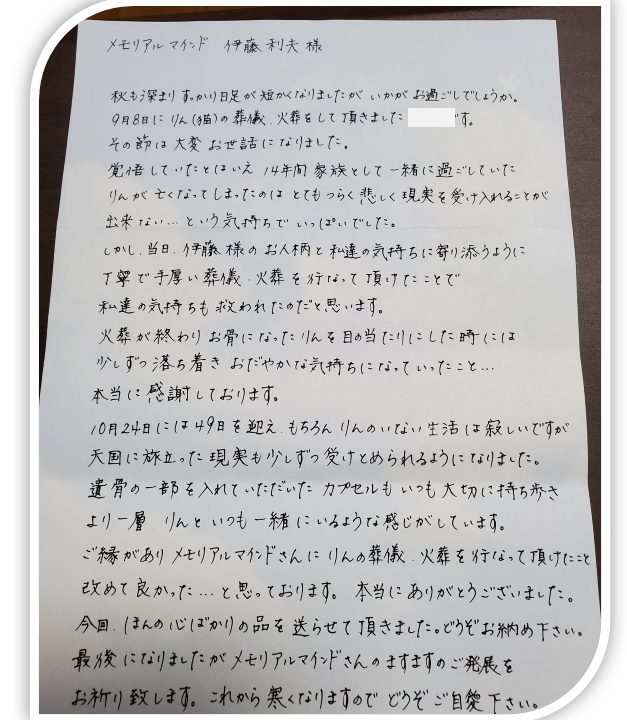 メモリアルマインド 伊藤利夫様
秋も深まりすっかり日足が短かくなりましたがいかがお過ごしでしょうか。
9月8日にりん(猫)の葬儀、火葬をして頂きました です。
その節は大変お世話になりました。
覚悟していたとはいえ 14年間家族として一緒に過ごしていた
りんが亡くなってしまったのはとてもつらく悲しく現実を受け入れることが
出来ない…という気持ちでいっぱいでした。
しかし、当日、伊藤様のお人柄と私達の気持ちに寄り添うように
丁寧で手厚い葬儀、火葬を行なって頂けたことで
私達の気持ちも救われたのだと思います。
火葬が終わりお骨になったりんを目の当たりにした時には
少しずつ落ち着きおだやかな気持ちになっていったこと…
本当に感謝しております。
10月24日には49日を迎え、もちろんりんのいない生活は寂しいですが
天国に旅立った現実も少しずつ受けとめられるようになりました。
遺骨の一部を入れていただいたカプセルもいつも大切に持ち歩き
より一層りんといつも一緒にいるような感じがしています。
ご縁がありメモリアルマインドさんにりんの葬儀、火葬を行なって頂けたこと
改めて良かった…と思っております。 本当にありがとうございました。
今回、ほんの心ばかりの品を送らせて頂きました。どうぞお納め下さい。
最後になりましたがメモリアルマインドさんのますますのご発展を
お祈り致します。これから寒くなりますのでどうぞご自愛下さい。